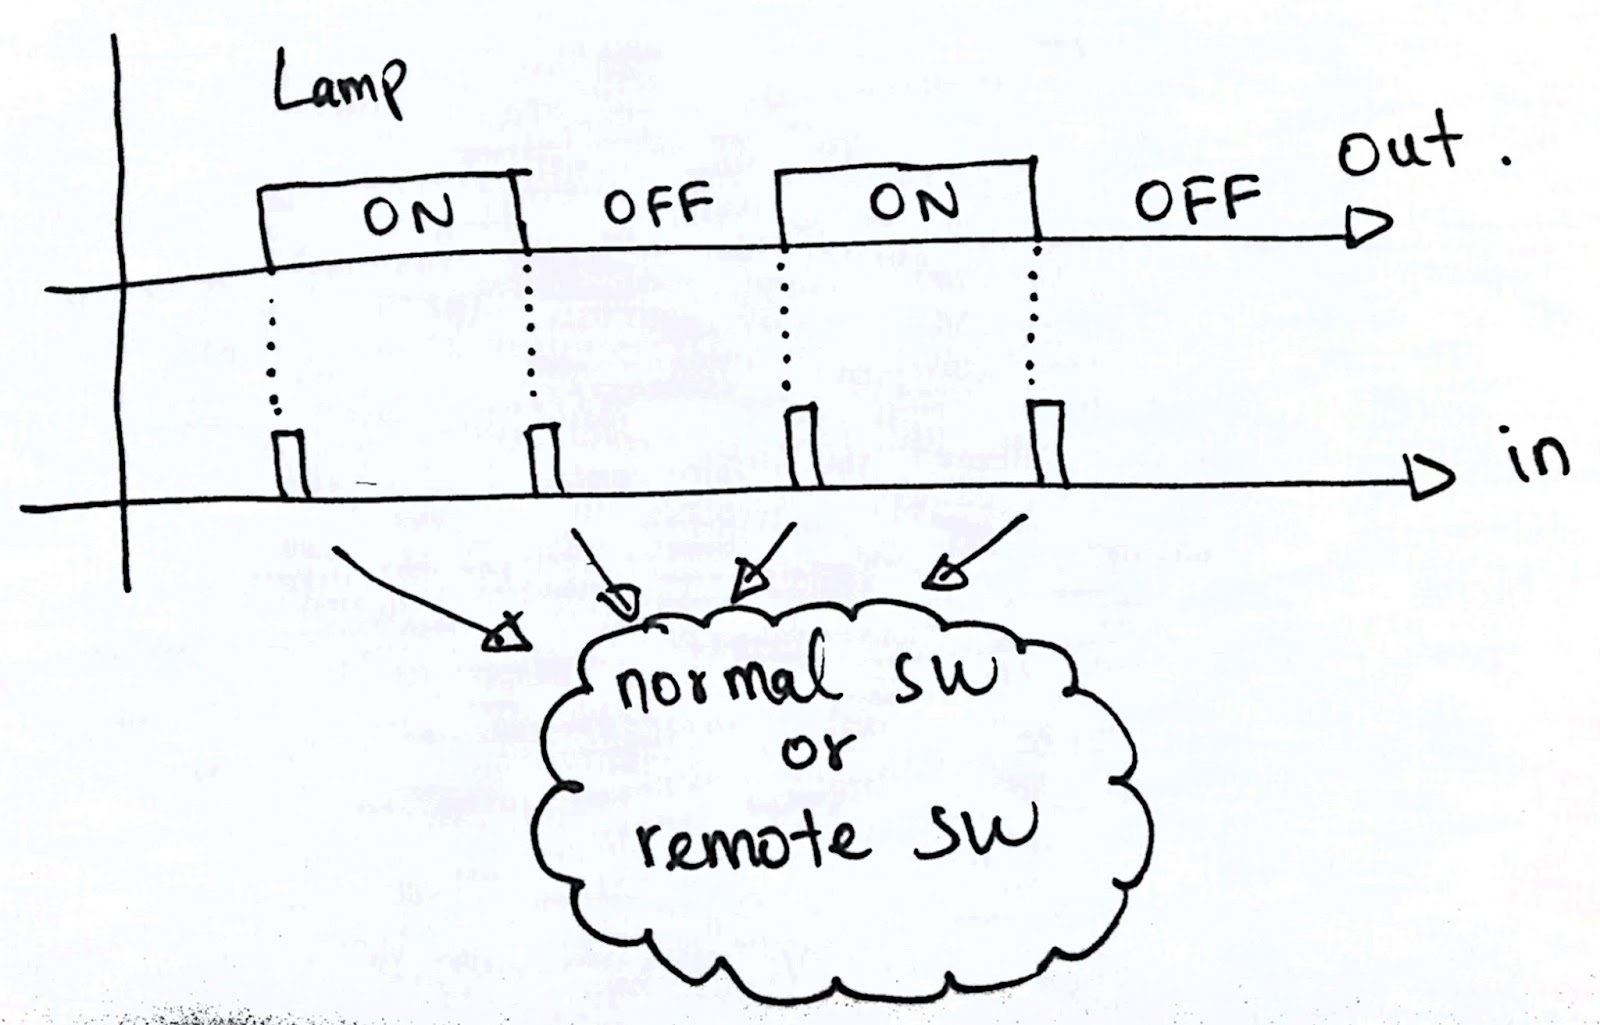 Lamp
Out.
ON OFF ON OFF
in
normal sw
or
remote sw